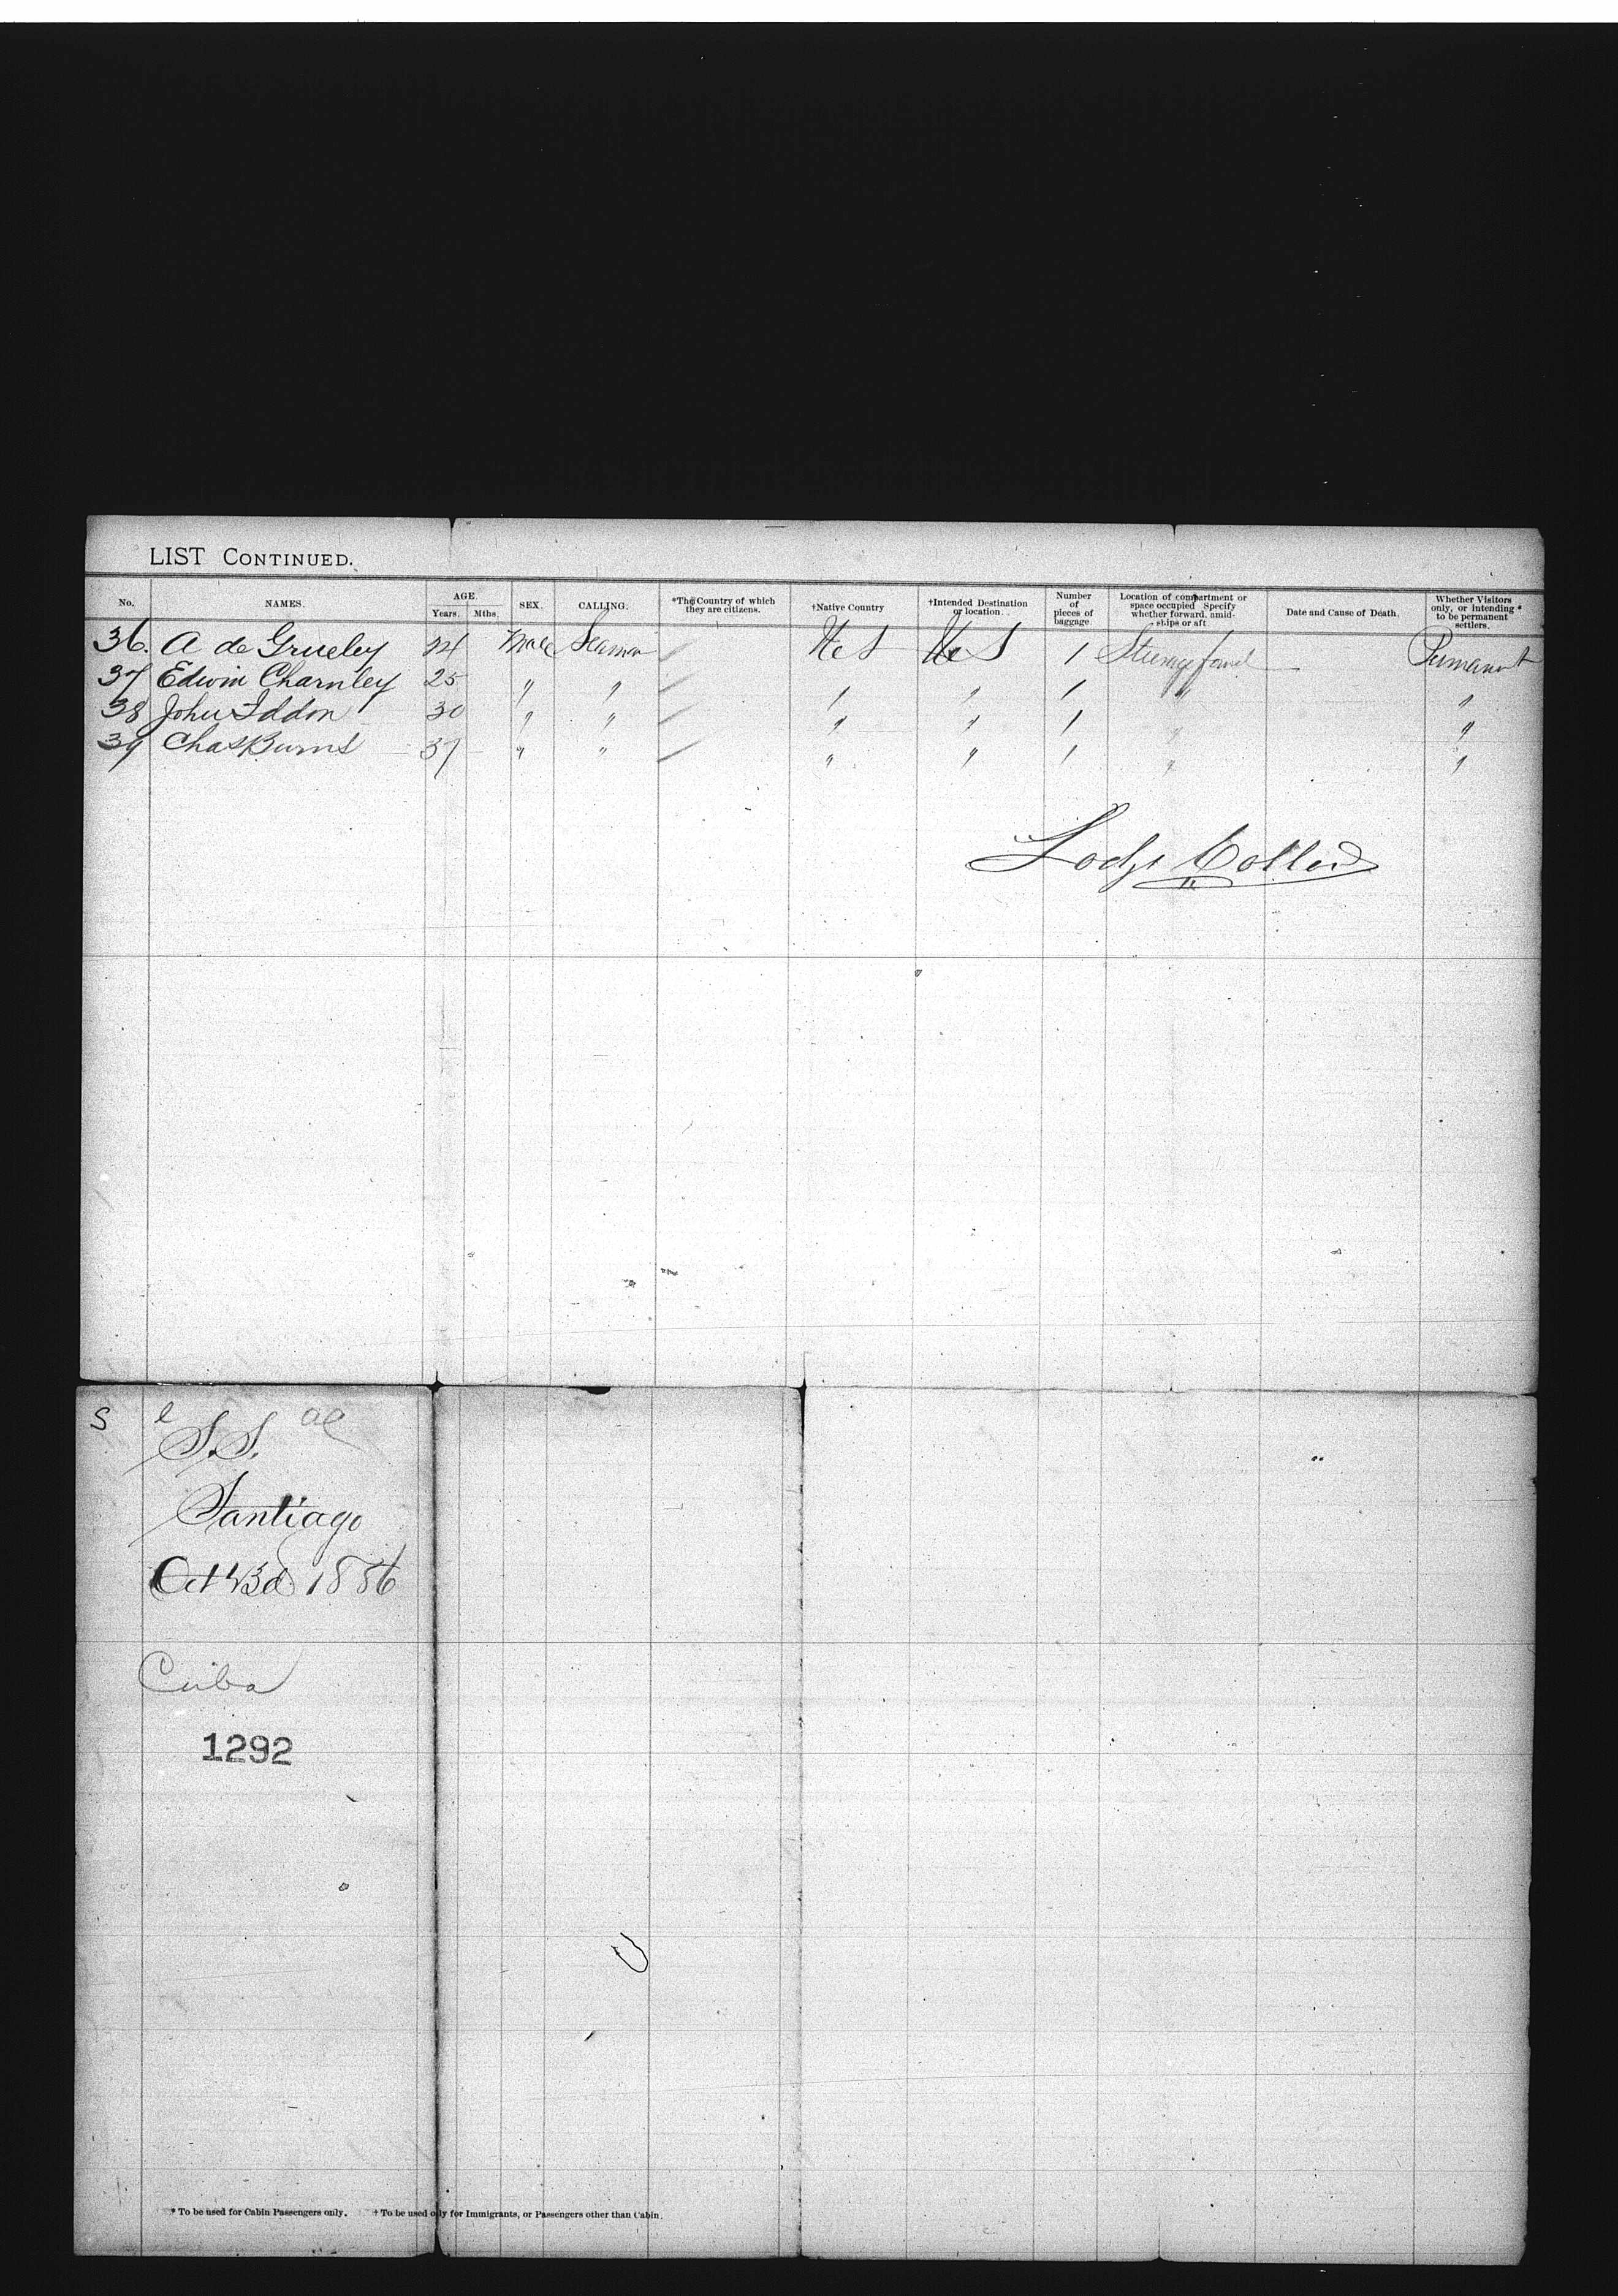 LIST CONTINUED.
No. NAMES. AGE. Years. Mths. SEX. CALLING. *The Country of which they are citizens. †Native Country †Intended Destination or location. Number of pieces of baggage. Location of compartment or space occupied Specify whether forward, amidships or aft Date and Cause of Death. Whether Visitors only, or intending * to be permanent settlers.
36. A de Grueley 24 Male Seaman U S U S 1 Steerage forwd Permanent
37 Edwin Charnley 25 " " " " 1 " "
38 John Iddon 30 " " " " 1 " "
39 Chas Burns 37 " " " " 1 " "
S
S.S.
Santiago
Oct 1886
Cuba
1292
* To be used for Cabin Passengers only. † To be used only for Immigrants, or Passengers other than Cabin.